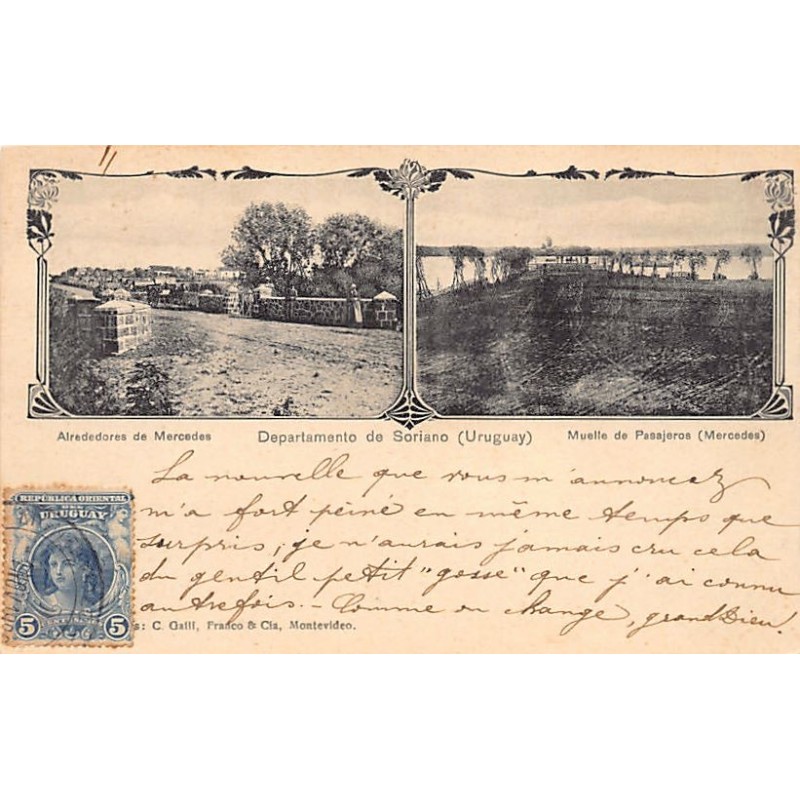 11
Alrededores de Mercedes
Departamento de Soriano (Uruguay)
Muelle de Pasajeros (Mercedes)
La nouvelle que vous m'annoncez
m'a fort peiné en même temps que
surpris, je n'aurais jamais cru cela
du gentil petit "gosse" que j'ai connu
autrefois. - Comme on change, grand Dieu!
REPÚBLICA ORIENTAL
URUGUAY
5 5
: C. Galli, Franco & Cia, Montevideo.